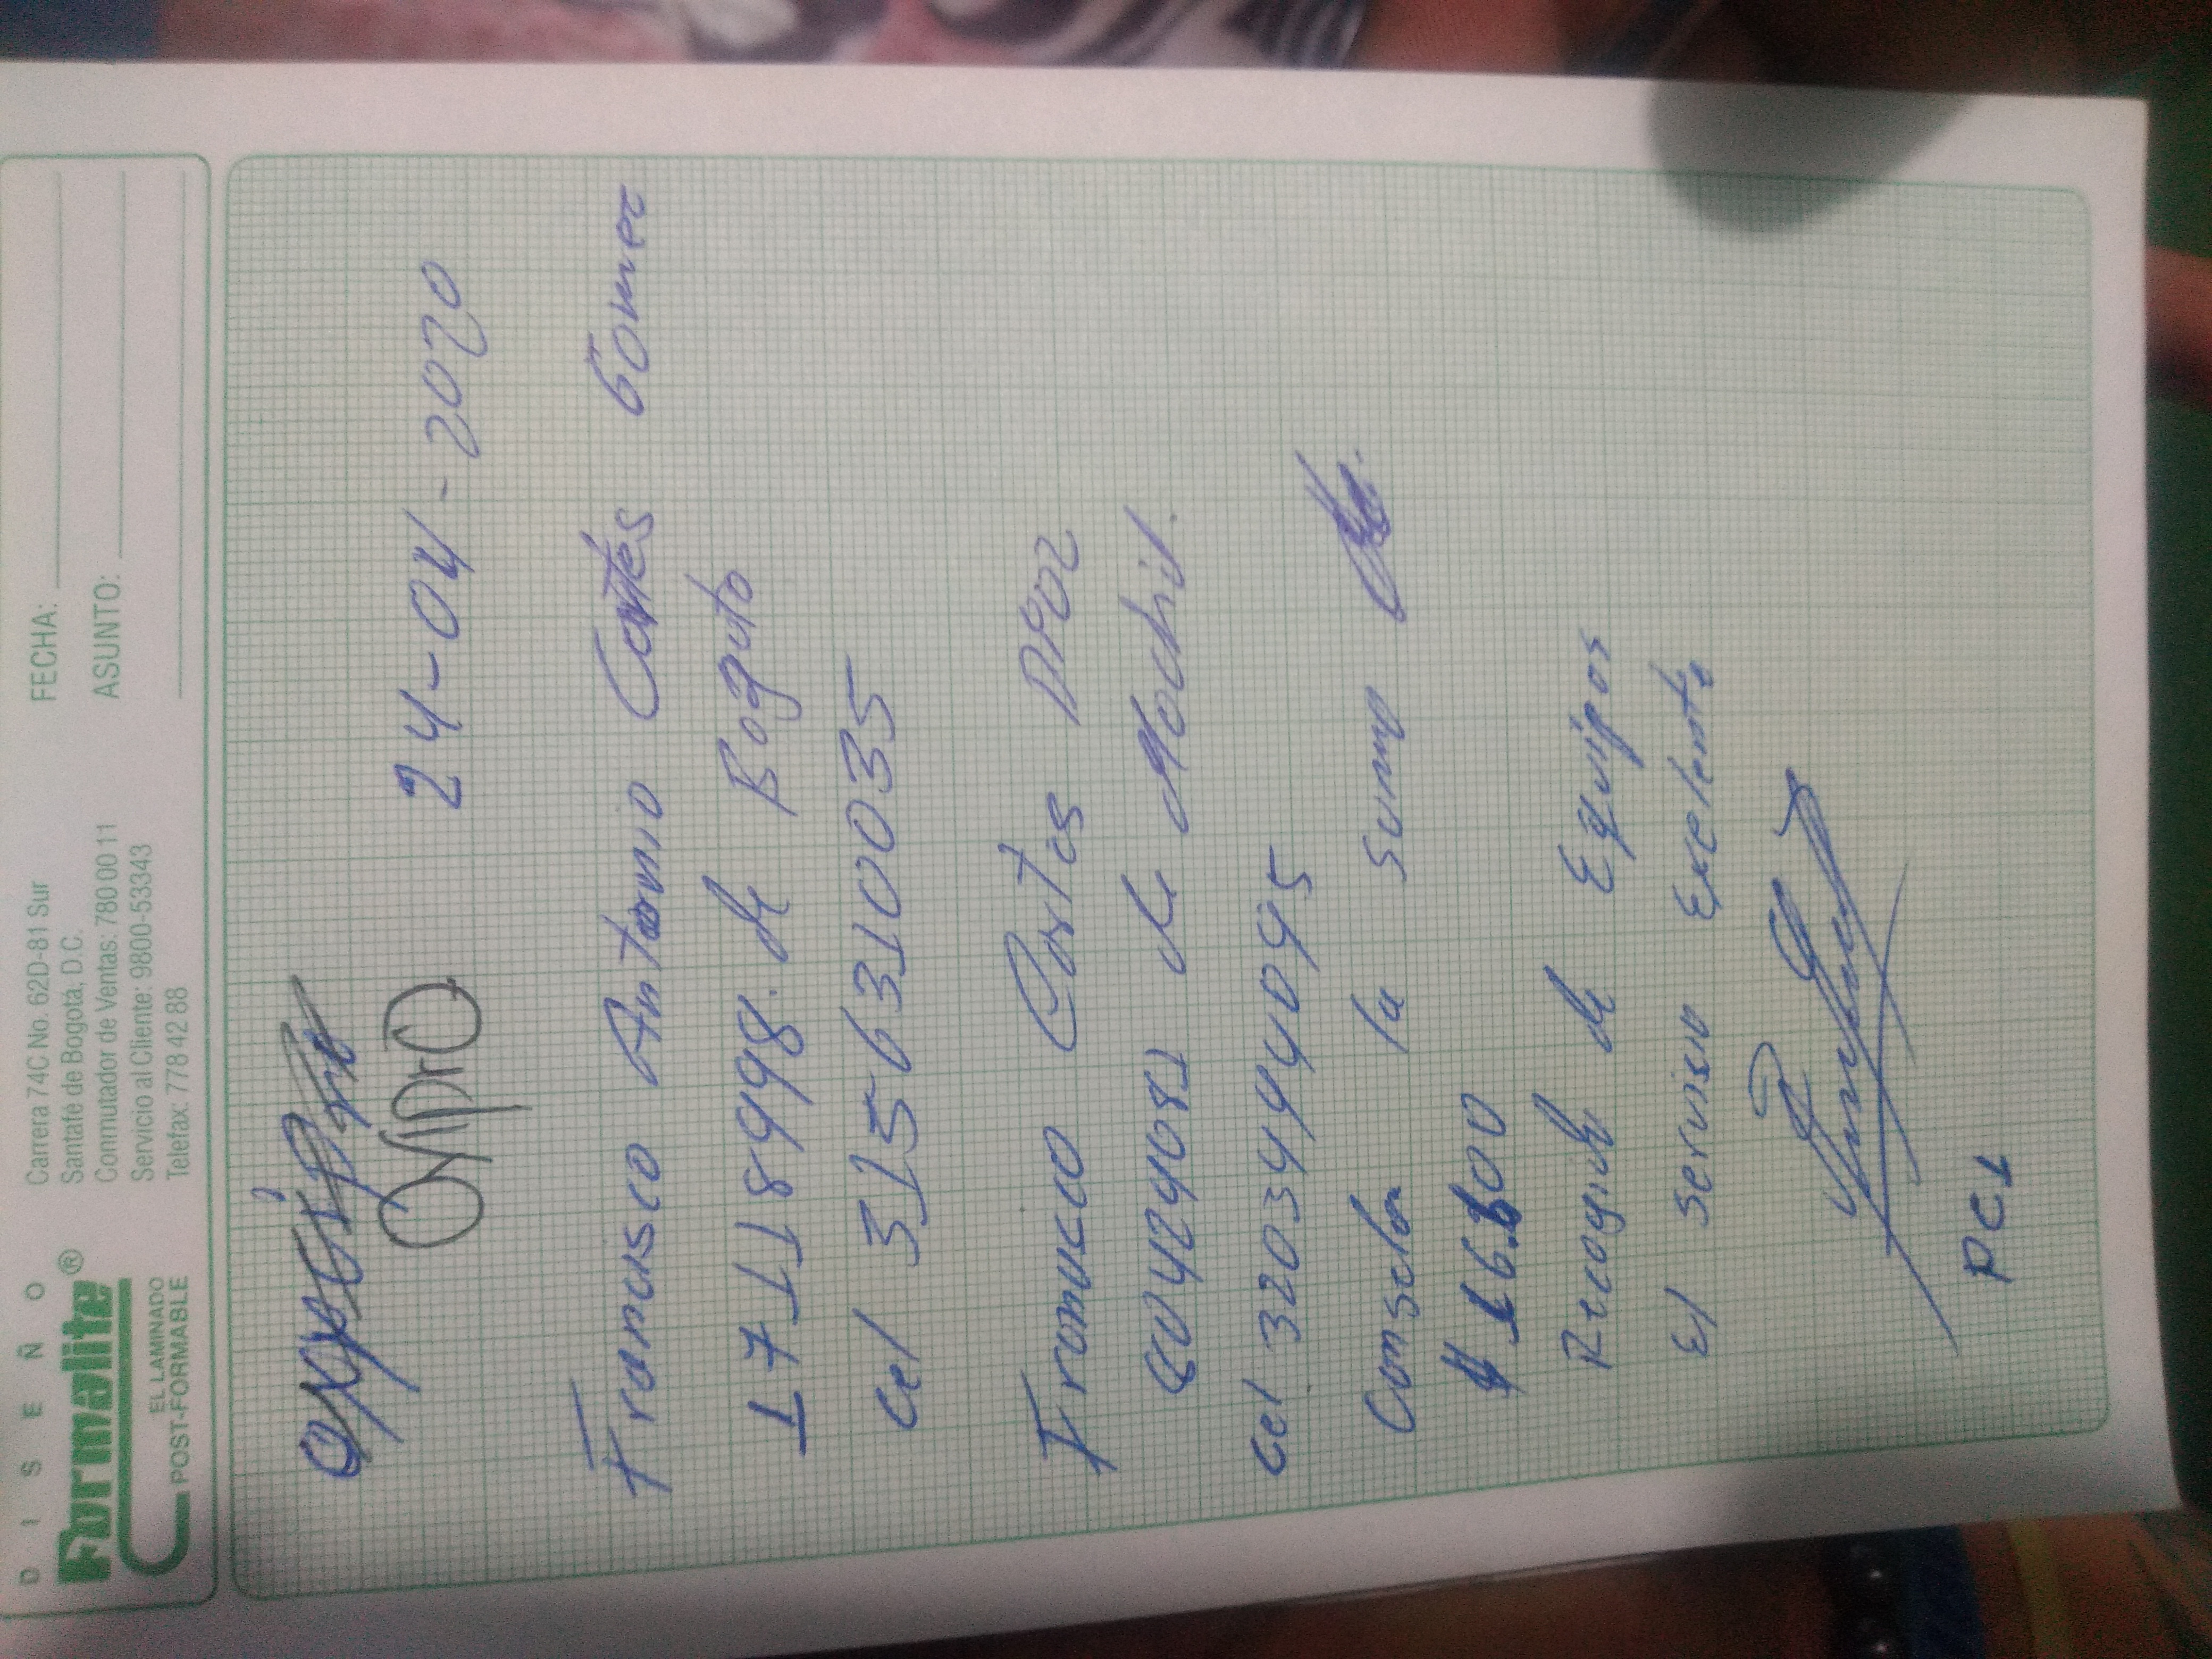 DISEÑO
Formalite®
EL LAMINADO
POST-FORMABLE
Carrera 74C No. 62D-81 Sur
Santafé de Bogotá, D.C.
Conmutador de Ventas: 780 00 11
Servicio al Cliente: 9800-53343
Telefax: 778 42 88
FECHA:
ASUNTO:
OxiprO 24-04-2020
Fransisco Antonio Cortés Gomez
17118998. de Bogota
cel 3156310035
Francisco Cortes Diaz
80424081 de Madrid.
cel 3203444095
Conselan la suma de.
$ 16.800
Recogida de Equipos
El servisio Exelente
PC1